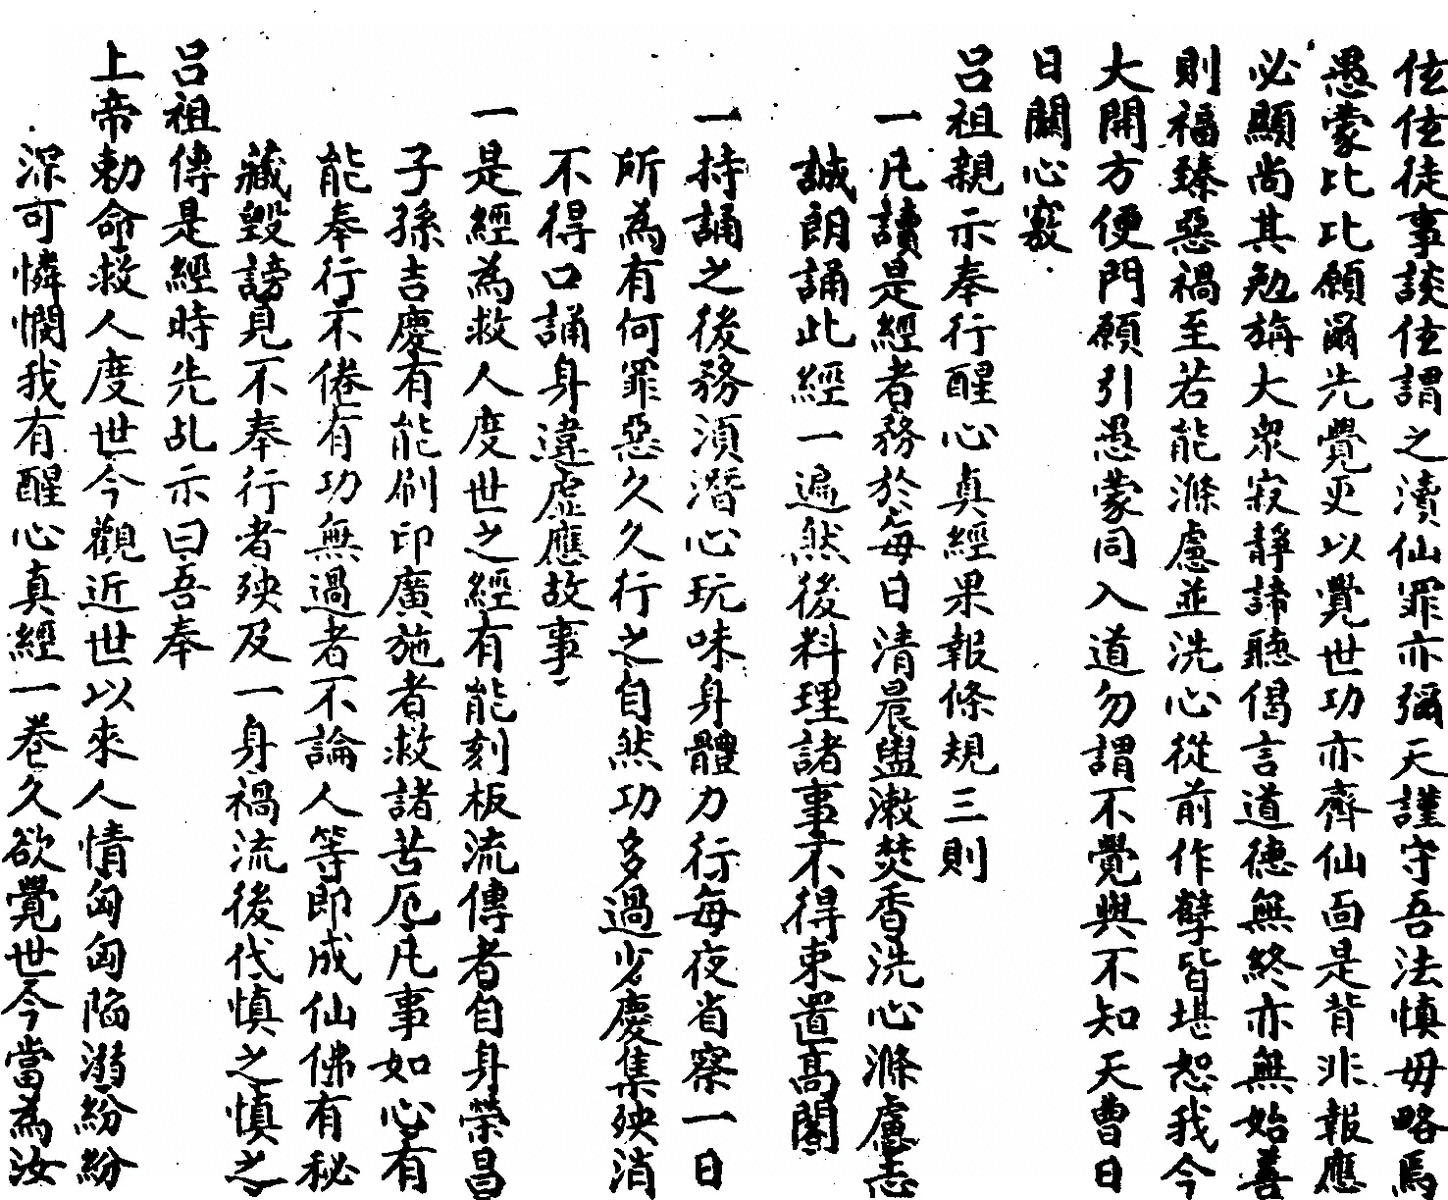 伭伭徒事談伭謂之瀆仙罪亦彌天謹守吾法慎毋略焉
愚蒙比比願爾先覺更以覺世功亦齊仙面是背非報應
必顯尚其勉旃大眾寂靜諦聽偈言道德無終亦無始善
則福臻惡禍至若能滌慮並洗心從前作孽皆堪恕我今
大開方便門願引愚蒙同入道勿謂不覺與不知天曹日
日關心竅
呂祖親示奉行醒心真經果報條規三則
一凡讀是經者務於每日清晨盥漱焚香洗心滌慮志
誠朗誦此經一遍然後料理諸事不得束置高閣
一持誦之後務須潛心玩味身體力行每夜省察一日
所為有何罪惡久久行之自然功多過少慶集殃消
不得口誦身違虛應故事
一是經為救人度世之經有能刻板流傳者自身榮昌
子孫吉慶有能刷印廣施者救諸苦厄凡事如心有
能奉行不倦有功無過者不論人等即成仙佛有秘
藏毀謗見不奉行者殃及一身禍流後代慎之慎之
呂祖傳是經時先乩示曰吾奉
上帝勅命救人度世今觀近世以來人情匈匈陷溺紛紛
深可憐憫我有醒心真經一卷久欲覺世今當為汝